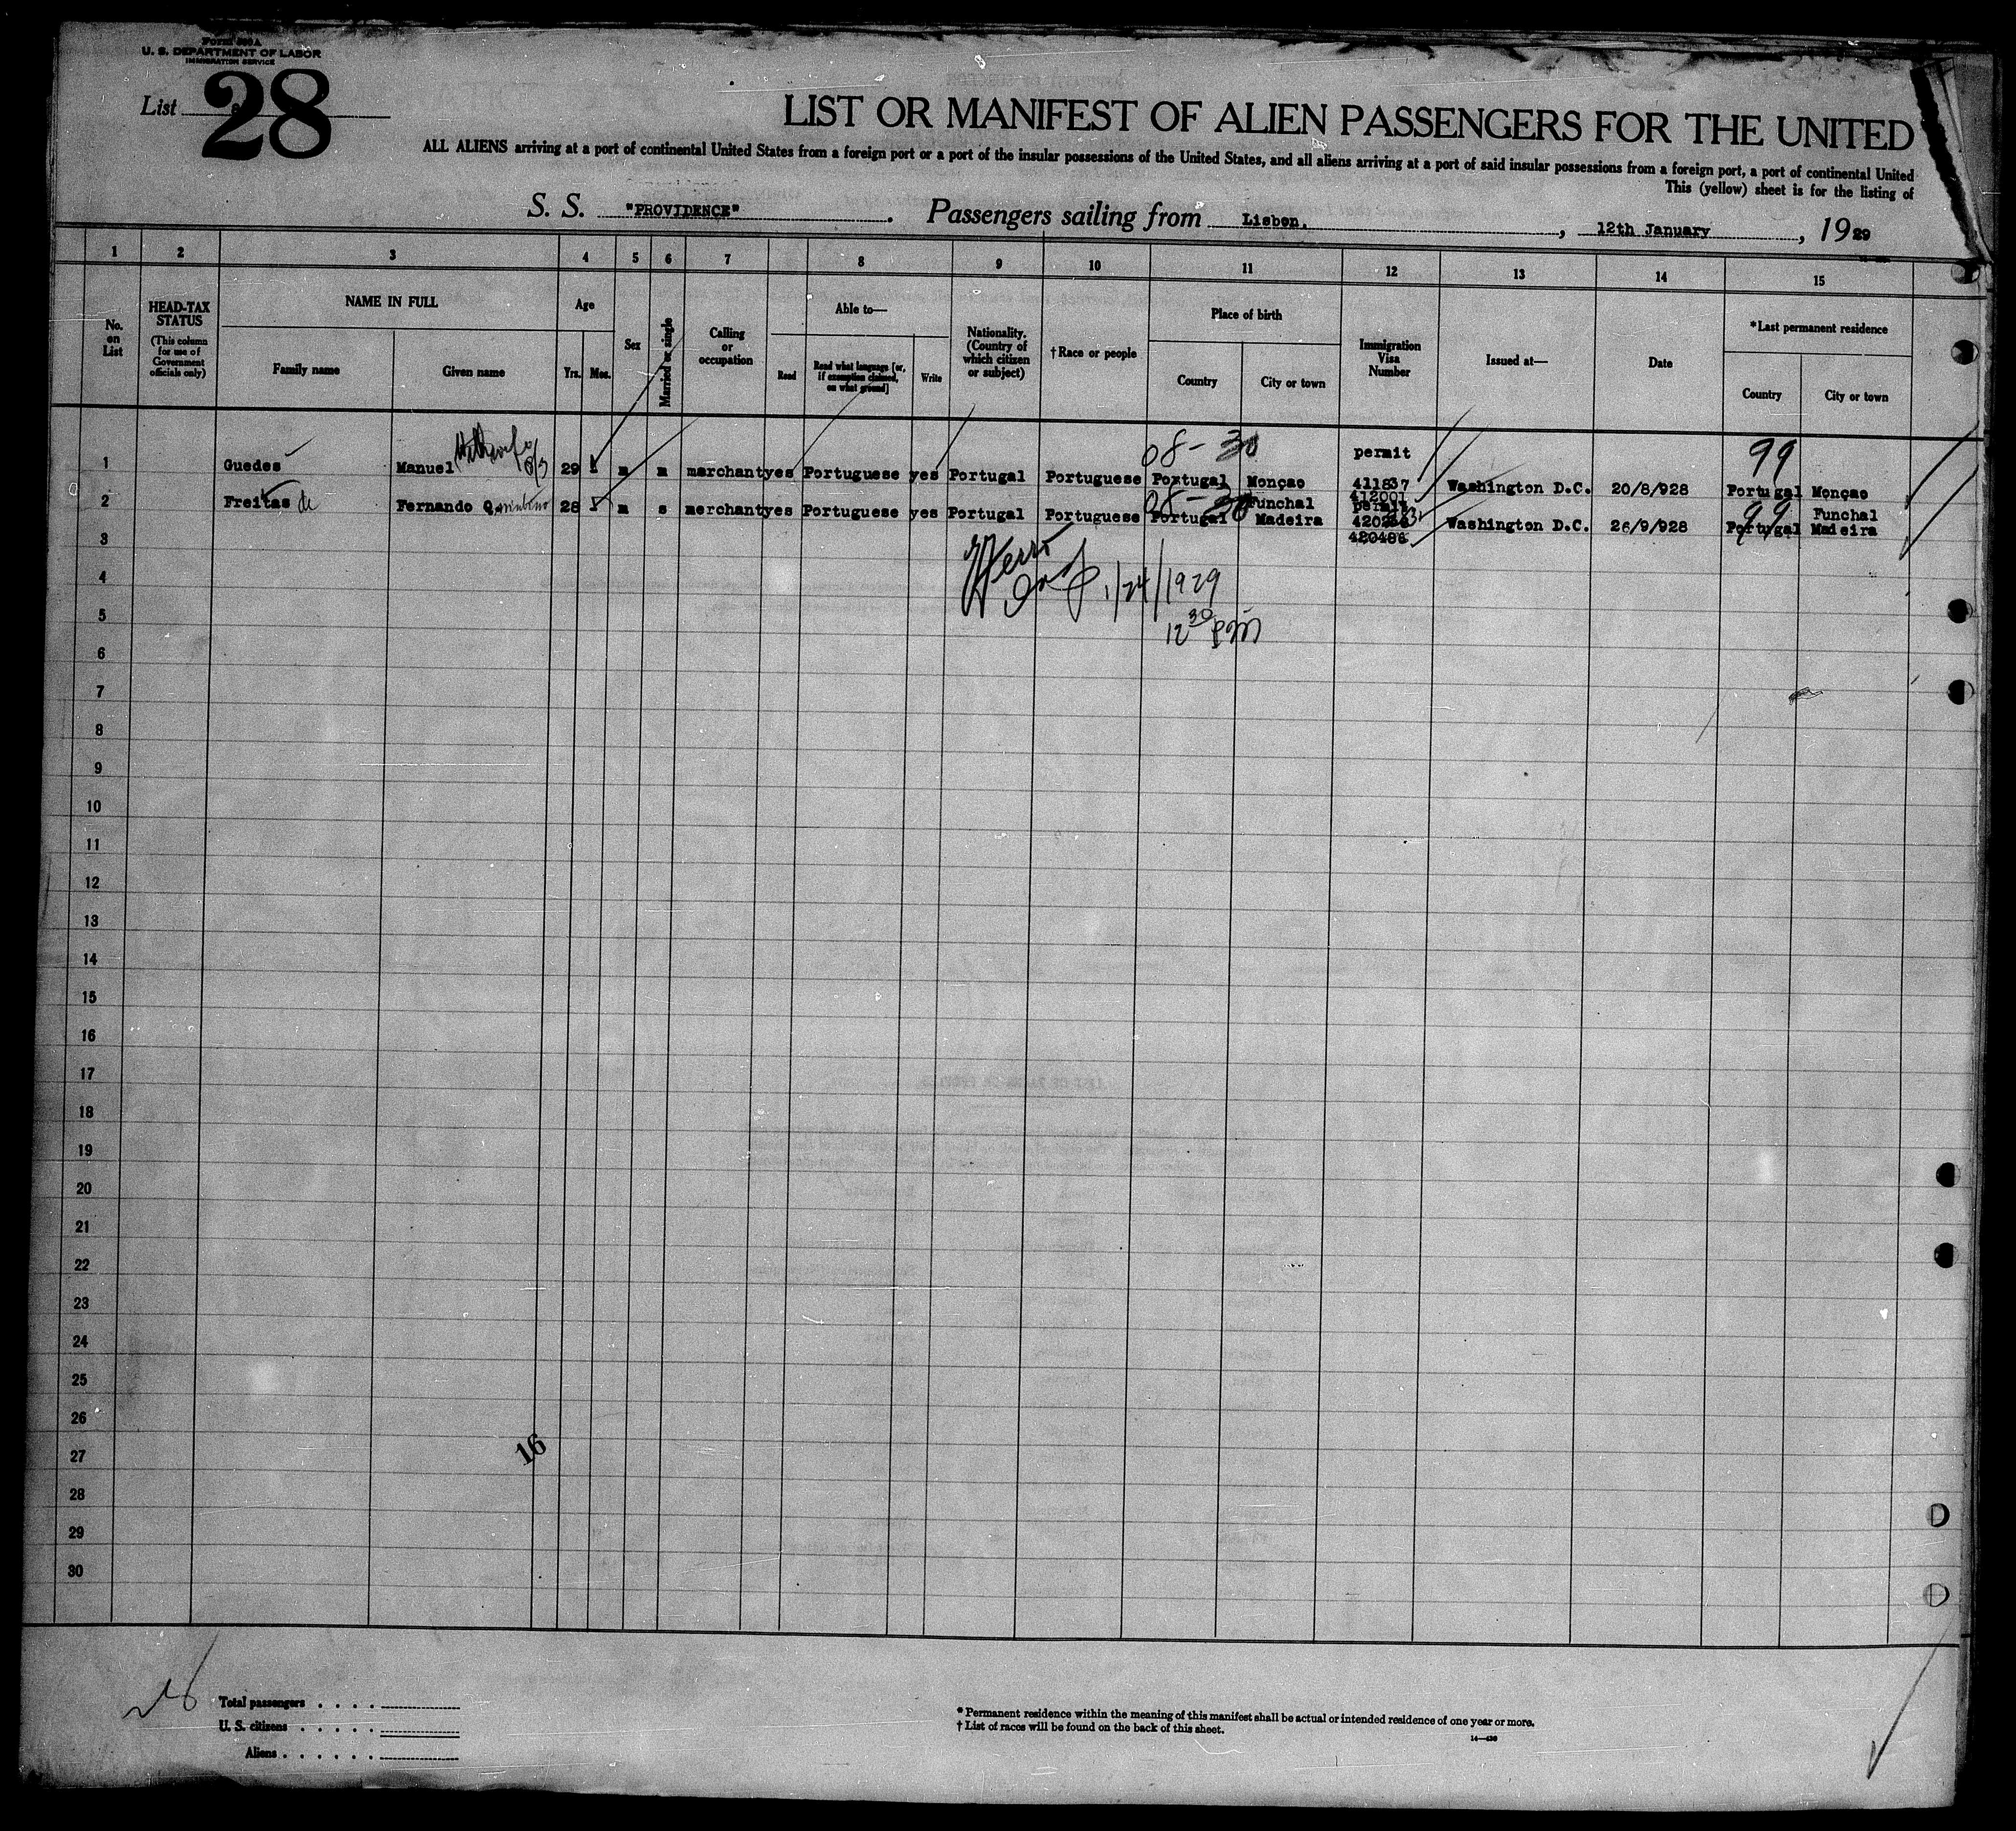 FORM 500 A
U. S. DEPARTMENT OF LABOR
IMMIGRATION SERVICE
List 28
LIST OR MANIFEST OF ALIEN PASSENGERS FOR THE UNITED
ALL ALIENS arriving at a port of continental United States from a foreign port or a port of the insular possessions of the United States, and all aliens arriving at a port of said insular possessions from a foreign port, a port of continental United
This (yellow) sheet is for the listing of
S. S. "PROVIDENCE". Passengers sailing from Lisbon, , 12th January , 1929
1 2 3 4 5 6 7 8 9 10 11 12 13 14 15
No. on List
HEAD-TAX STATUS
(This column for use of Government officials only)
NAME IN FULL
Family name
Given name
Age
Yrs.
Mos.
Sex
Married or single
Calling or occupation
Able to—
Read
Read what language [or, if exemption claimed, on what ground]
Write
Nationality. (Country of which citizen or subject)
†Race or people
Place of birth
Country
City or town
Immigration Visa Number
Issued at—
Date
*Last permanent residence
Country
City or town
08-30 permit 99
1 Guedes Manuel 29 m m merchant yes Portuguese yes Portugal Portuguese Portugal Monçao 411837 Washington D.C. 20/8/928 Portugal Monçao
412001
08-30 Funchal permit 99 Funchal
2 Freitas de Fernando 28 m s merchant yes Portuguese yes Portugal Portuguese Portugal Madeira Washington D.C. 26/9/928 Portugal Madeira
420486
3
4
1/24/1929
5
12 30 pm
6
7
8
9
10
11
12
13
14
15
16
17
18
19
20
21
22
23
24
25
26
16
27
28
29
30
Total passengers . . . .
U. S. citizens . . . . .
Aliens . . . . . .
* Permanent residence within the meaning of this manifest shall be actual or intended residence of one year or more.
† List of races will be found on the back of this sheet.
14—430